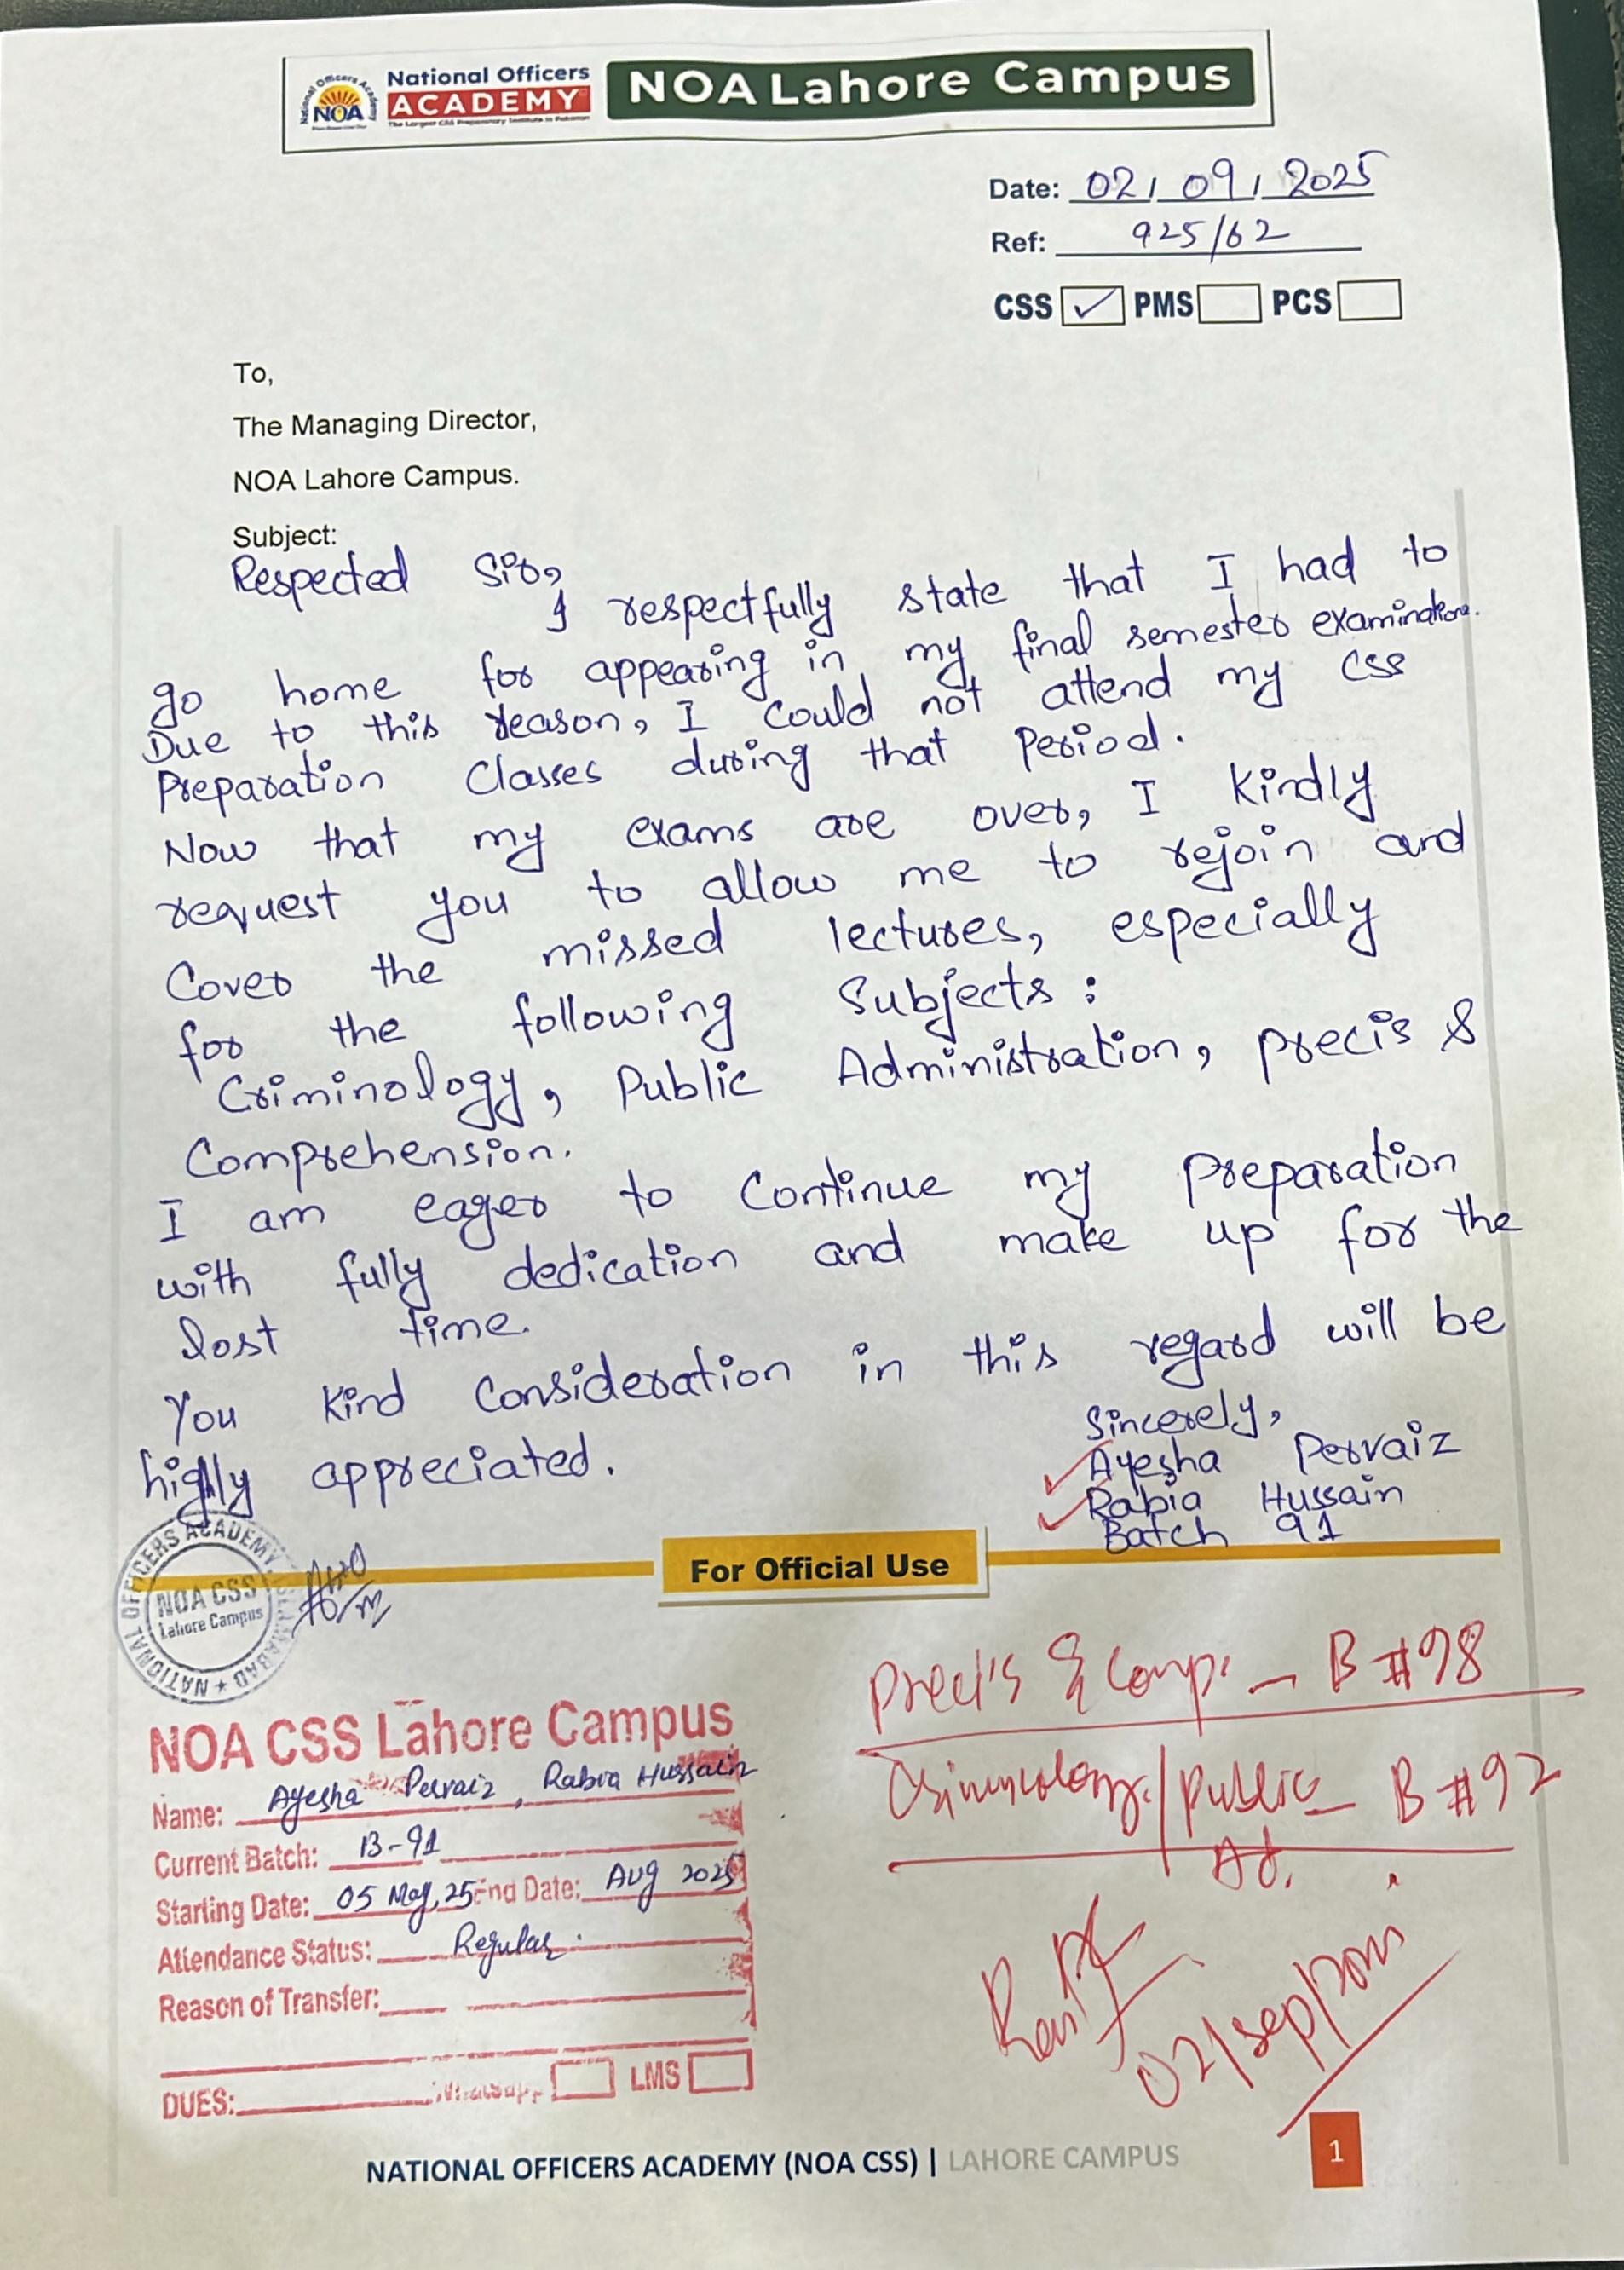 National Officers Academy
NOA
National Officers
ACADEMY
The Largest CSS Preparatory Institute in Pakistan
NOA Lahore Campus
Date: 02/09/2025
Ref: 925/62
CSS ✓ PMS PCS
To,
The Managing Director,
NOA Lahore Campus.
Subject:
Respected Sir,
I respectfully state that I had to
go home for appearing in my final semester examinations.
Due to this reason, I could not attend my CSS
Preparation Classes during that Period.
Now that my exams are over, I Kindly
request you to allow me to rejoin and
Cover the missed lectures, especially
for the following Subjects :
Criminology, Public Administration, Precis &
Comprehension.
I am eager to Continue my Preparation
with fully dedication and make up for the
lost time.
You Kind Consideration in this regard will be
highly appreciated.
Sincerely,
Ayesha Pervaiz
Rabia Hussain
Batch 91
For Official Use
NATIONAL OFFICERS ACADEMY, ISLAMABAD
NOA CSS
Lahore Campus
Precis & Comp. - B #98
Criminology/Public - B #92
Ad.
02/Sep/2025
NOA CSS Lahore Campus
Name: Ayesha Pervaiz, Rabia Hussain
Current Batch: B-91
Starting Date: 05 May, 25 End Date: Aug 2025
Attendance Status: Regular.
Reason of Transfer:
DUES: Whatsapp LMS
NATIONAL OFFICERS ACADEMY (NOA CSS) | LAHORE CAMPUS
1